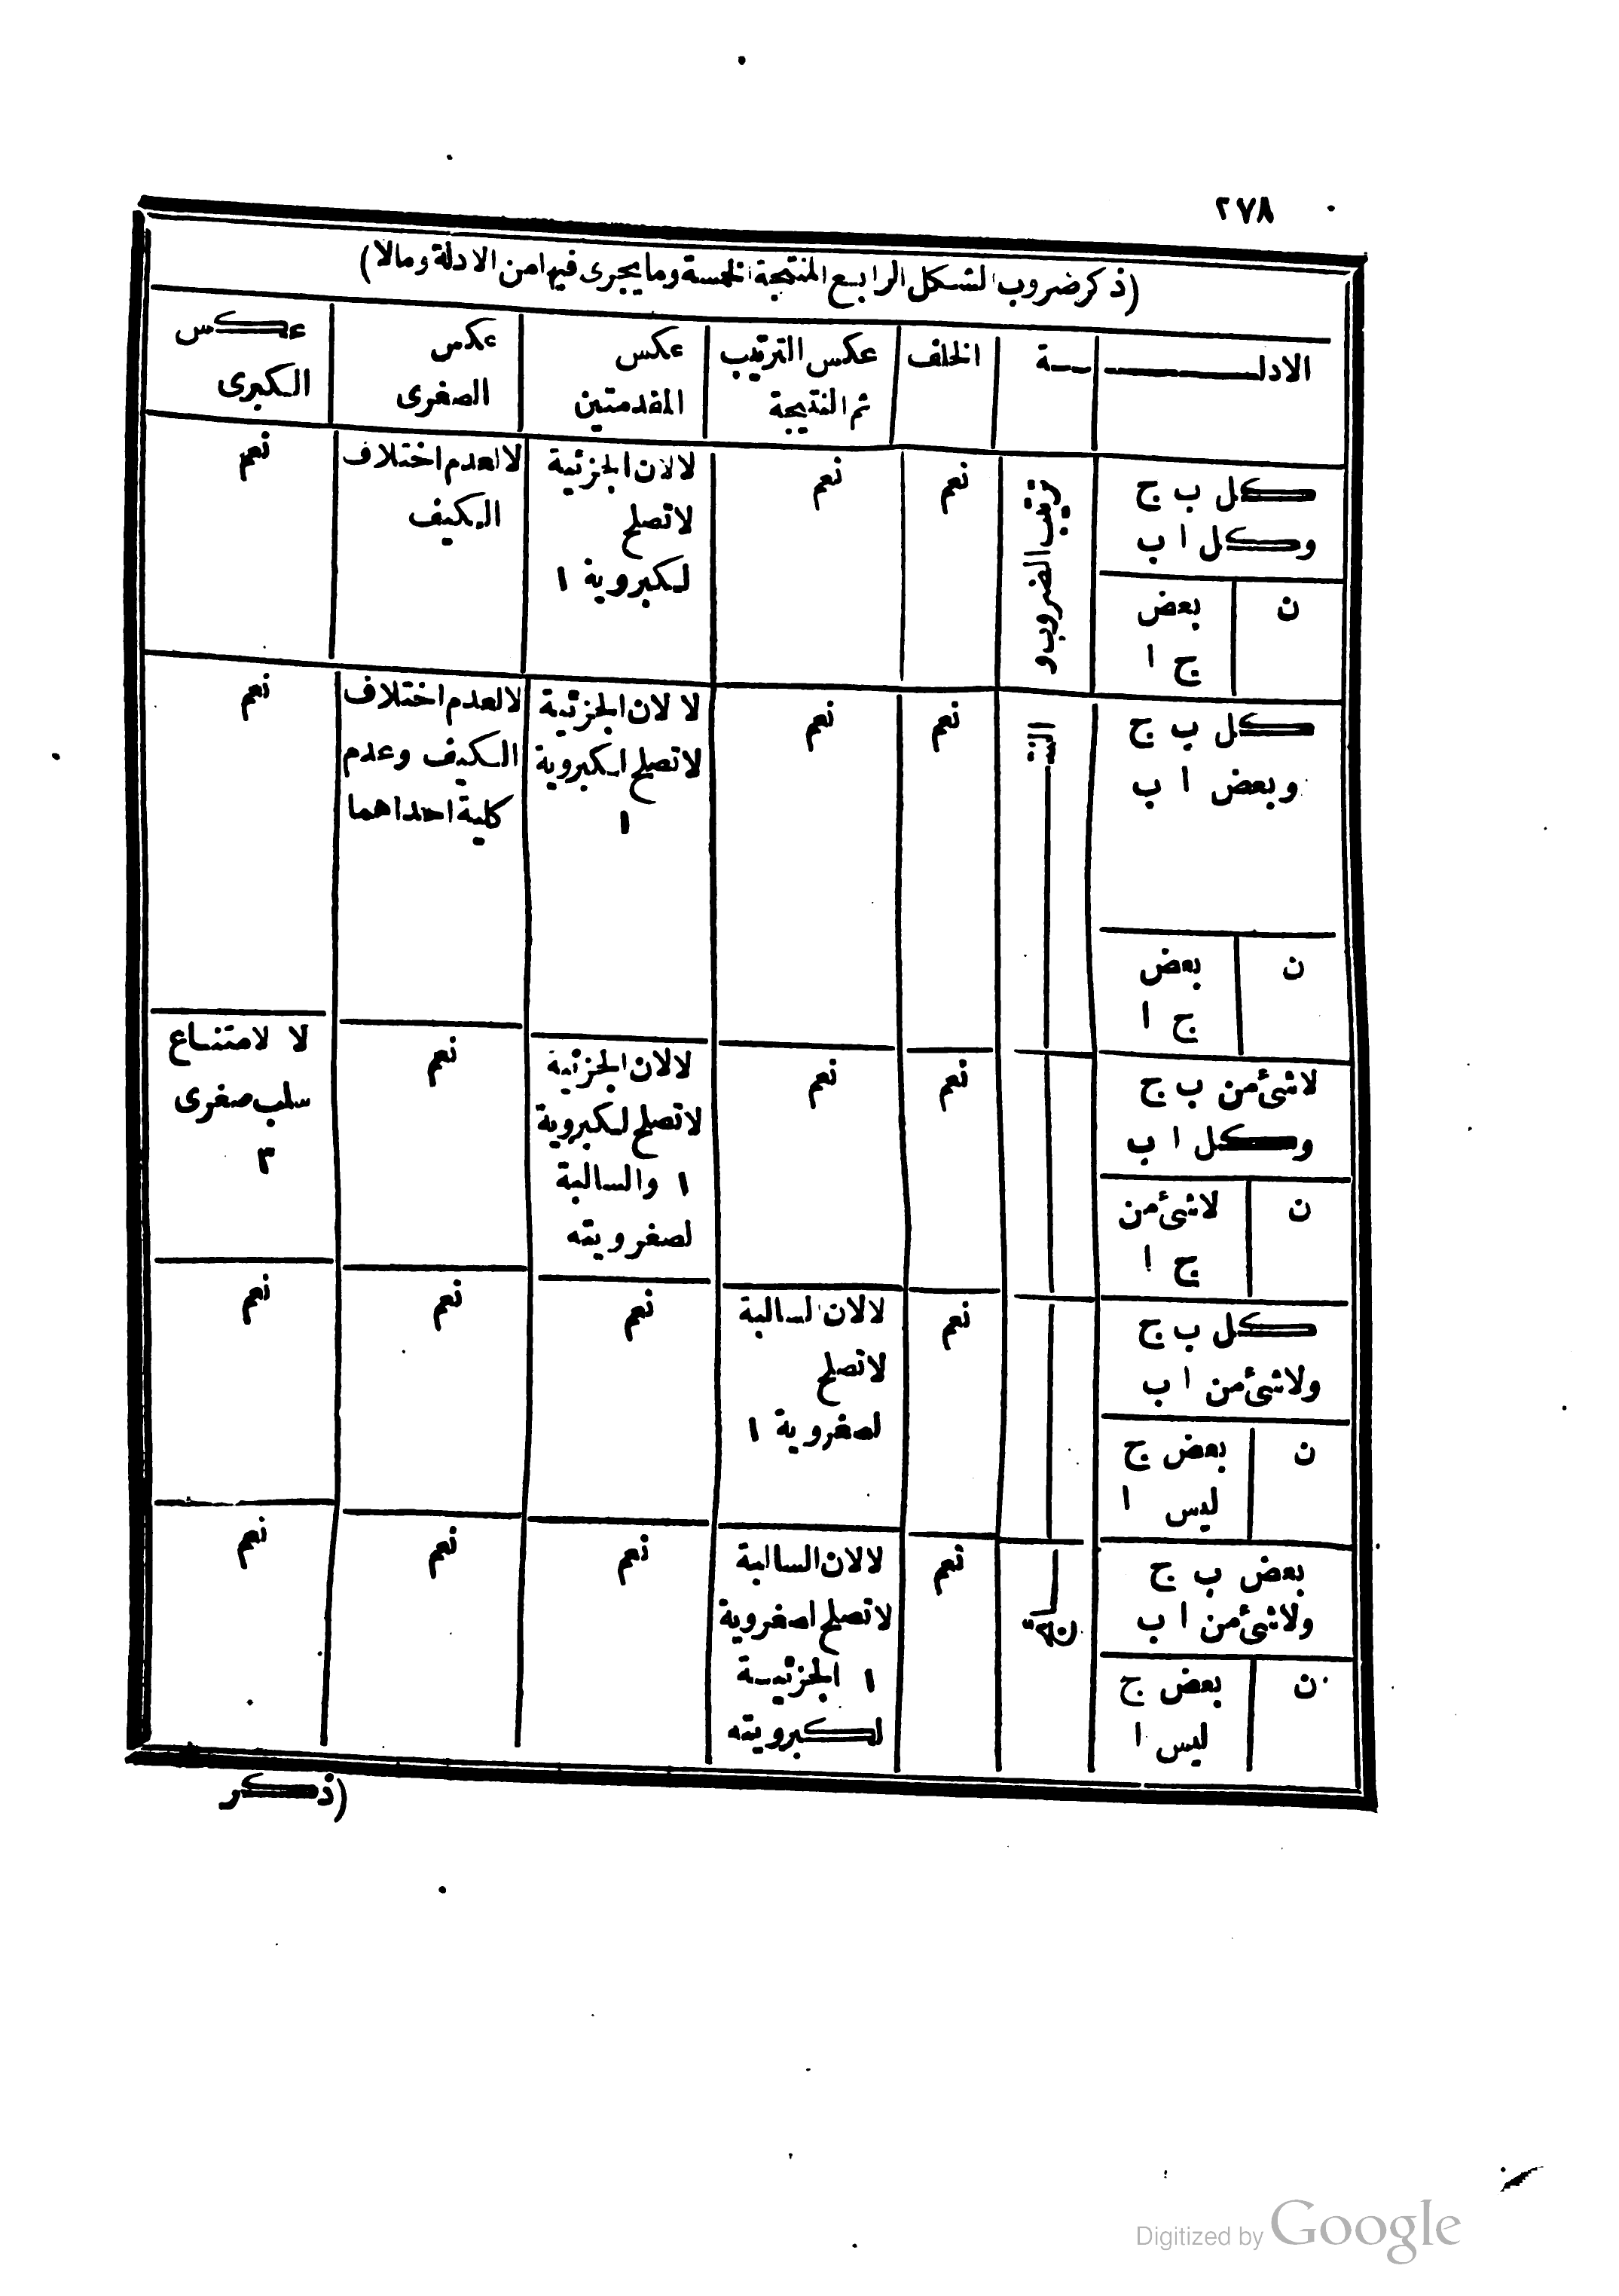 ٢٧٨
(ذكر ضروب الشكل الرابع المنتجة الخمسة وما يجرى فيها من الادلة ومالا)
الادلـــة
الخلف
عكس الترتيب
ثم النتيجة
عكس
المقدمتين
عكس
الصغرى
عكس
الكبرى
كل ب ج
وكل ا ب
ن
بعض
ج ا
ترتيب الضروب و
نعم
نعم
لا لان الجزئية
لا تصلح
لكبروية ١
لا لعدم اختلاف
الكيف
نعم
كل ب ج
وبعض ا ب
ن
بعض
ج ا
النتـ
نعم
نعم
لا لان الجزئية
لا تصلح لكبروية
١
لا لعدم اختلاف
الكيف وعدم
كلية احداهما
نعم
لاشئ من ب ج
وكل ا ب
ن
لاشئ من
ج ا
نعم
نعم
لا لان الجزئية
لا تصلح لكبروية
١ والسالبة
لصغرويته
نعم
لا لامتناع
سلب صغرى
٣
كل ب ج
ولاشئ من ا ب
ن
بعض ج
ليس ا
نعم
لا لان السالبة
لا تصلح
لصغروية ١
نعم
نعم
نعم
بعض ب ج
ولاشئ من ا ب
ن
بعض ج
ليس ا
نعم
لا لان السالبة
لا تصلح لصغروية
١ الجزئيـة
لكبرويته
نعم
نعم
نعم
(ذكر
Digitized by Google